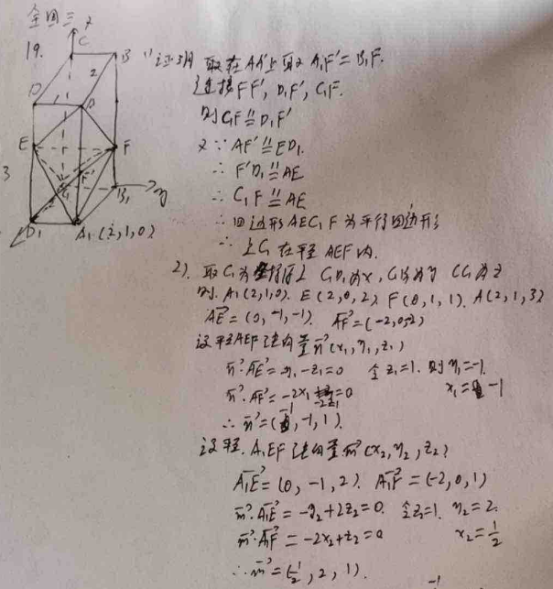 全国三
19.
z
C
B
D
A
2
E
F
3
F'
C₁
B₁
y
D₁
A₁(2,1,0)
1)证明 取在AA₁上取A₁F'=B₁F.
连接FF', D₁F', C₁F.
则C₁F∥=D₁F'
又∵AF'∥=ED₁.
∴F'D₁∥=AE
∴C₁F∥=AE
∴四边形AEC₁F为平行四边形
∴点C₁在平面AEF内.
2). 取C₁为坐标原点 C₁D₁为x, C₁B₁为y CC₁为z
则. A₁(2,1,0). E(2,0,2) F(0,1,1). A(2,1,3)
AE=(0,-1,-1). AF=(-2,0,-2)
设平AEF法向量n(x₁,y₁,z₁)
n·AE=-y₁-z₁=0 令z₁=1. 则y₁=-1.
n·AF=-2x₁-2z₁=0 x₁=-1
∴n=(-1,-1,1).
设平. A₁EF法向量m(x₂,y₂,z₂)
A₁E=(0,-1,2). A₁F=(-2,0,1)
m·A₁E=-y₂+2z₂=0. 令z₂=1. y₂=2.
m·A₁F=-2x₂+z₂=0 x₂=1/2
∴m=(1/2,2,1).